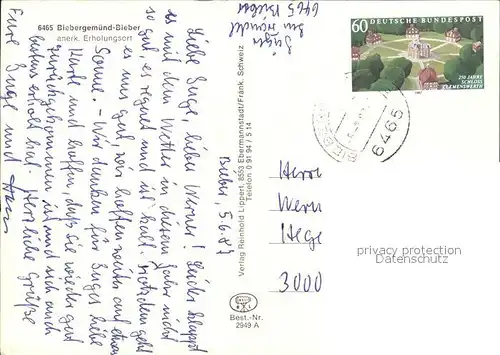 6465 Biebergemünd-Bieber
anerk. Erholungsort
6465 Bieber
Bieber, 5.6.87
Liebe Inge, lieber Werner! Leider klappt
es mit dem Wetter in diesem Jahr nicht
so gut, es regnet und ist kalt. Trotzdem geht
es uns gut, wir hoffen weiter auf etwas
Sonne. – Wir danken für Inges liebe
Karte und hoffen, daß Sie wieder gut
zurückgekommen sind und sich auch
bestens erholt hat. Herzliche Grüße
Eure Inge und
Verlag Reinhold Lippert, 8553 Ebermannstadt/Fränk. Schweiz
Telefon 0 91 94 / 5 14
Best.-Nr.
2949 A
60 DEUTSCHE BUNDESPOST
250 JAHRE
SCHLOSS
CLEMENSWERTH
6465
Herrn
Wern
Hege
3000
privacy protection
Datenschutz